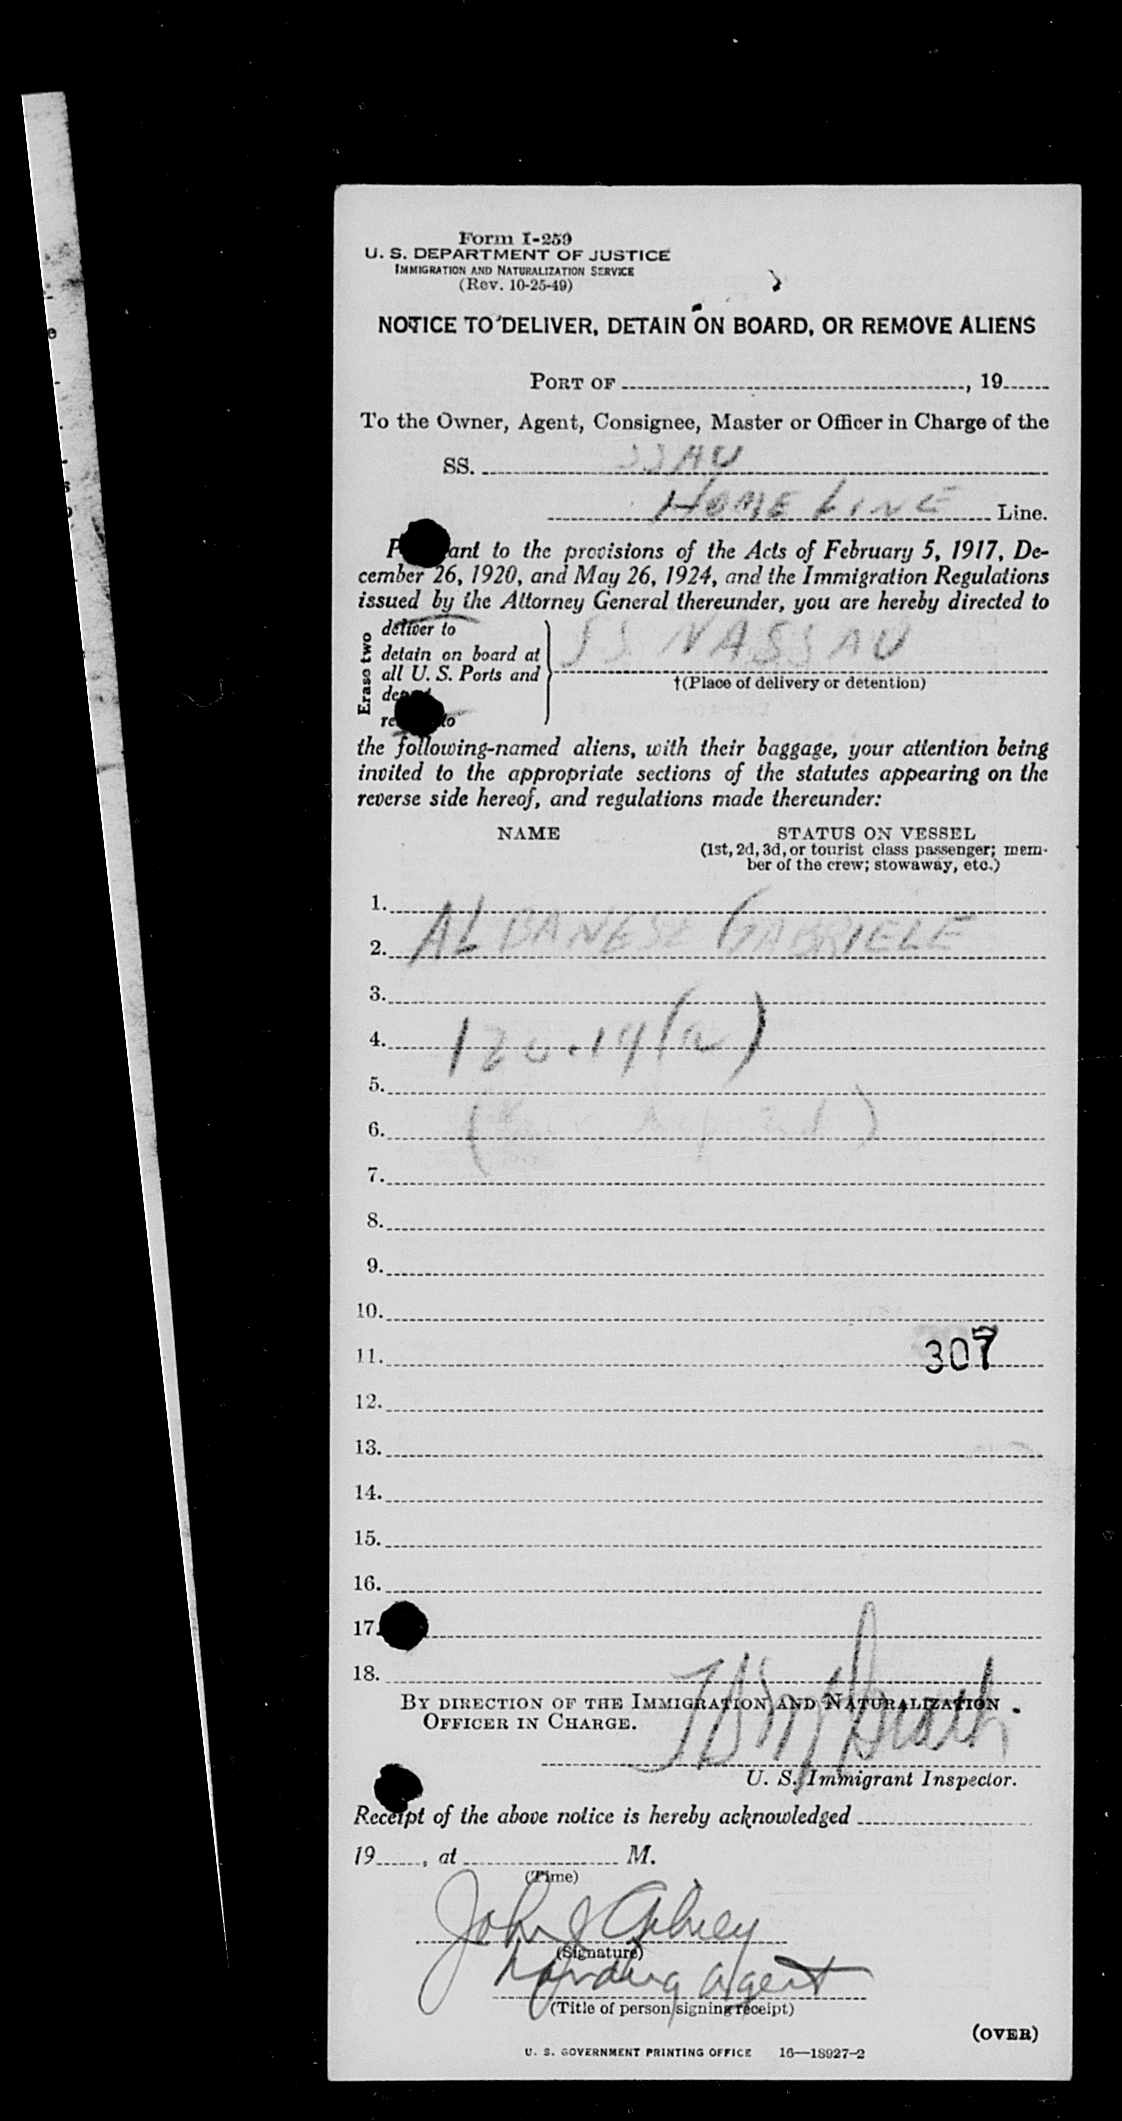 Form I-259
U. S. DEPARTMENT OF JUSTICE
IMMIGRATION AND NATURALIZATION SERVICE
(Rev. 10-25-49)
NOTICE TO DELIVER, DETAIN ON BOARD, OR REMOVE ALIENS
PORT OF , 19
To the Owner, Agent, Consignee, Master or Officer in Charge of the
SS. SSAU
HOME LINE Line.
ant to the provisions of the Acts of February 5, 1917, De-
cember 26, 1920, and May 26, 1924, and the Immigration Regulations
issued by the Attorney General thereunder, you are hereby directed to
Erase two
deliver to
detain on board at
all U. S. Ports and
SS NASSAU
†(Place of delivery or detention)
the following-named aliens, with their baggage, your attention being
invited to the appropriate sections of the statutes appearing on the
reverse side hereof, and regulations made thereunder:
NAME STATUS ON VESSEL
(1st, 2d, 3d, or tourist class passenger; mem-
ber of the crew; stowaway, etc.)
1.
2. ALBANESE GABRIELE
3.
4. 120.14(a)
5.
6.
7.
8.
9.
10.
11. 307
12.
13.
14.
15.
16.
17.
18.
BY DIRECTION OF THE IMMIGRATION AND NATURALIZATION
OFFICER IN CHARGE.
U. S. Immigrant Inspector.
Receipt of the above notice is hereby acknowledged
19 , at M.
(Time)
John J
(Signature)
agent
(Title of person signing receipt)
(OVER)
U. S. GOVERNMENT PRINTING OFFICE 16—18927-2